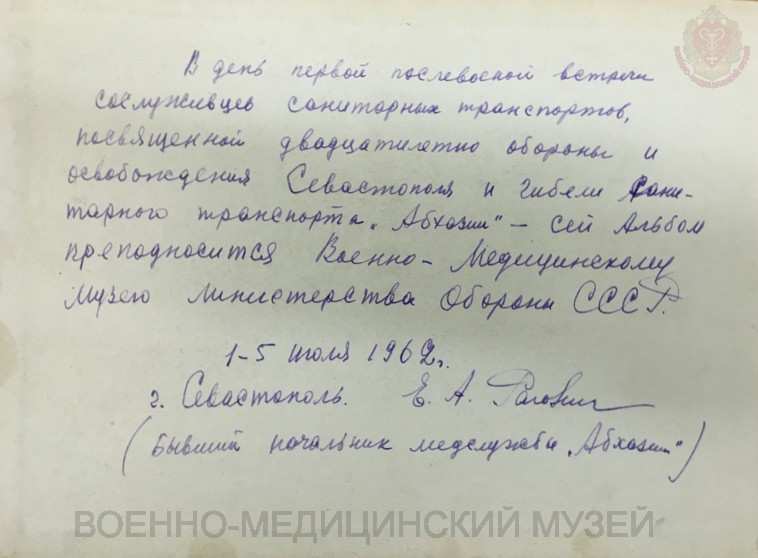 В день первой послевоенной встречи
сослуживцев санитарных транспортов,
посвященной двадцатилетию обороны и
освобождения Севастополя и гибели Сани-
тарного транспорта „Абхазии" – сей Альбом
преподносится Военно-Медицинскому
Музею Министерства Обороны СССР.
1-5 июля 1962г.
г. Севастополь. Е. А.
(Бывший начальник медслужбы „Абхазии")
ВОЕННО-МЕДИЦИНСКИЙ МУЗЕЙ